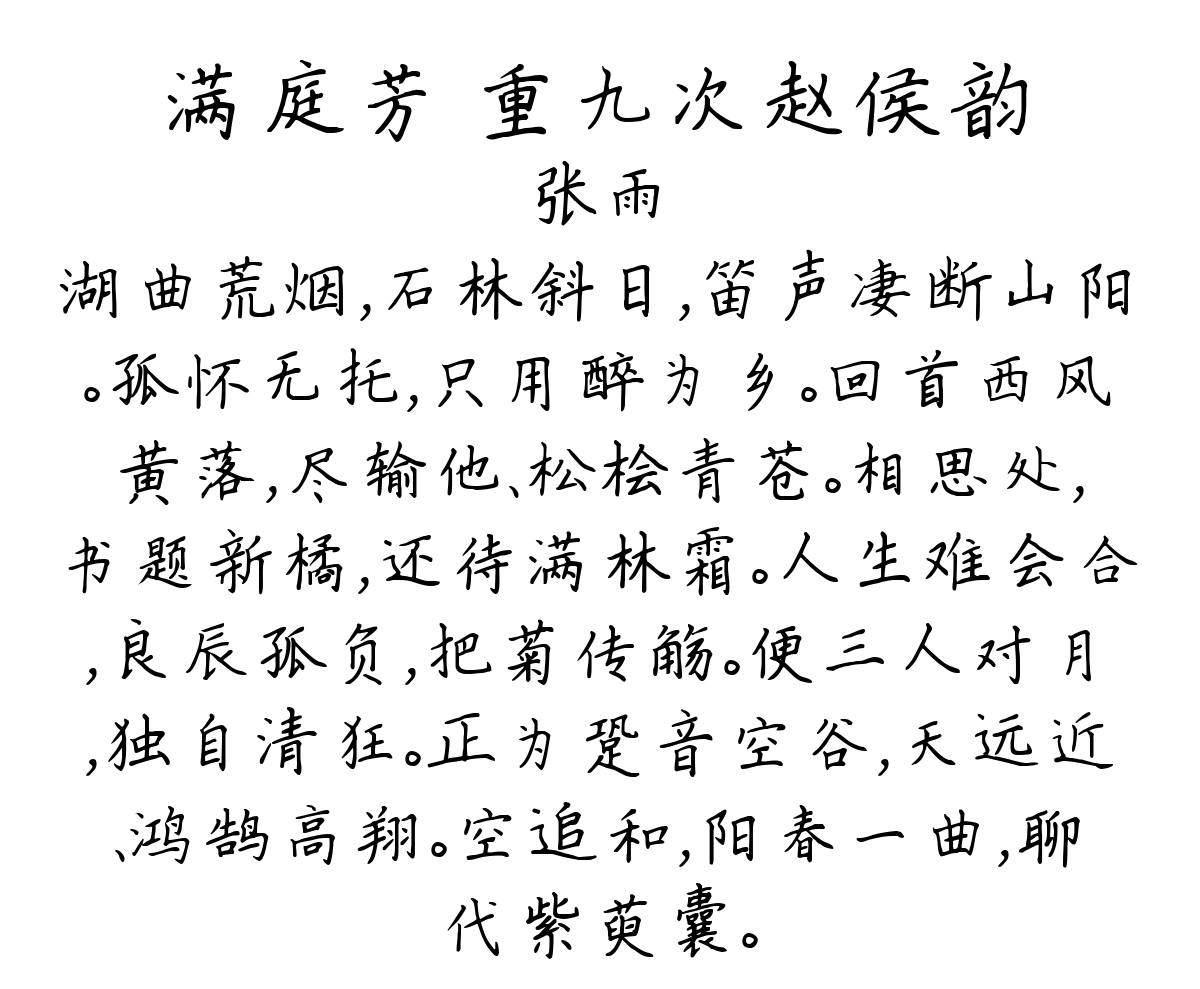 满庭芳 重九次赵侯韵
张雨
湖曲荒烟,石林斜日,笛声凄断山阳
。孤怀无托,只用醉为乡。回首西风
黄落,尽输他、松桧青苍。相思处,
书题新橘,还待满林霜。人生难会合
,良辰孤负,把菊传觞。便三人对月
,独自清狂。正为跫音空谷,天远近
、鸿鹄高翔。空追和,阳春一曲,聊
代紫萸囊。